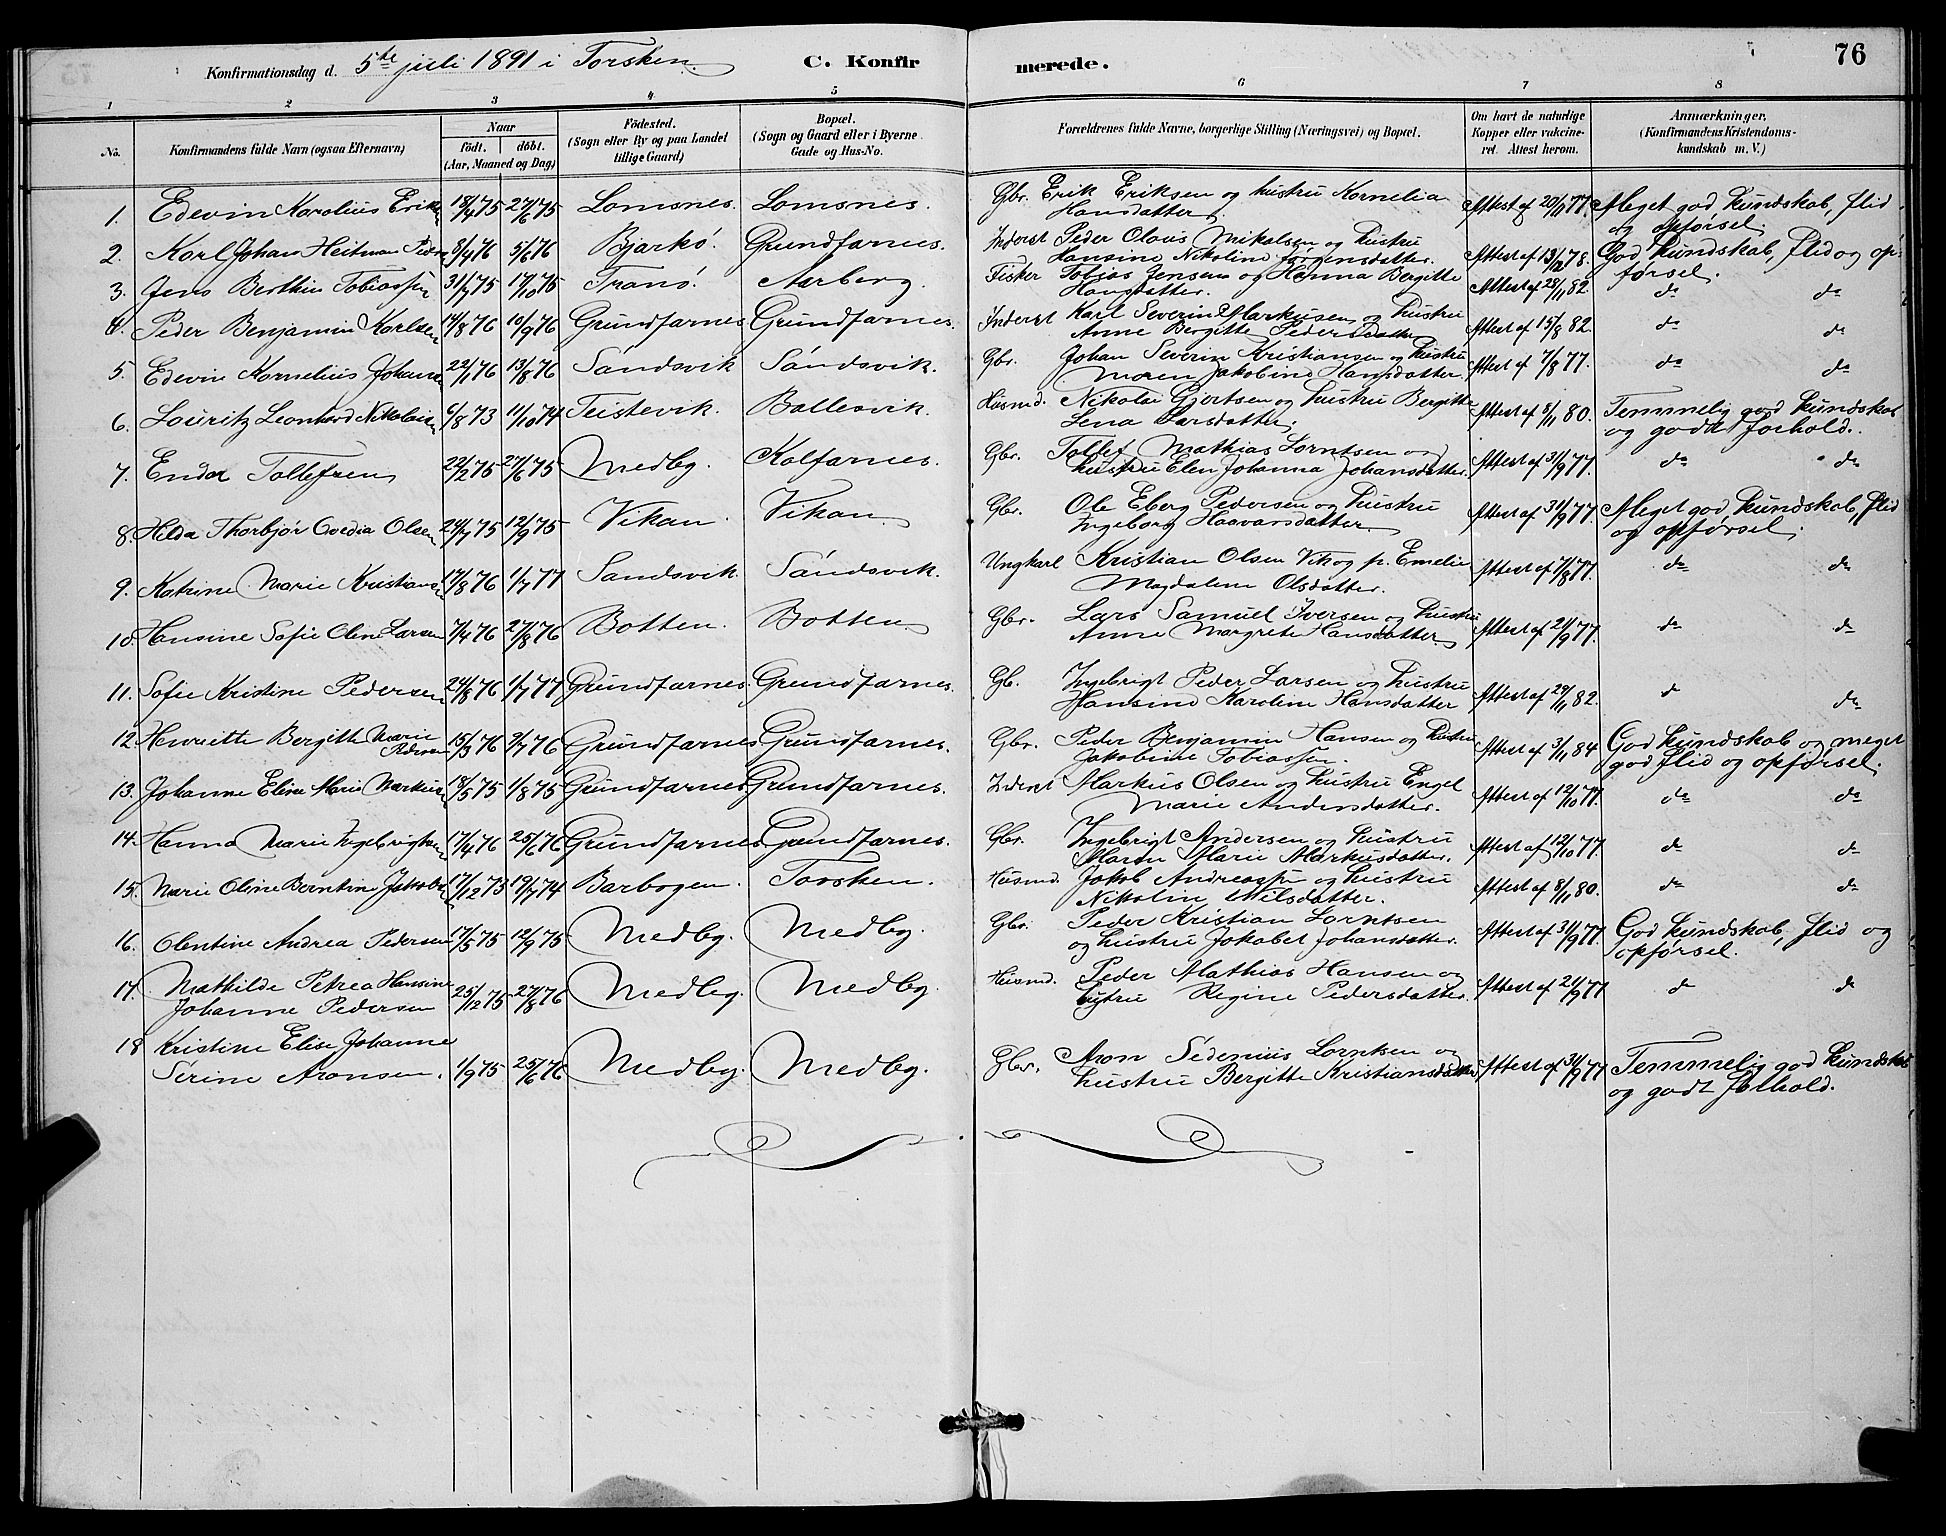 76
Konfirmationsdag d. 5te juli 1891 i Torsken. C. Konfirmerede.
1 2 3 4 5 6 7 8
No. Konfirmandens fulde Navn (ogsaa Efternavn) Naar født. døbt. (Aar, Maaned og Dag) Fødested. (Sogn eller By og paa Landet tillige Gaard) Bopæl. (Sogn og Gaard eller i Byerne Gade og Hus-No. Forældrenes fulde Navne, borgerlige Stilling (Næringsvei) og Bopæl. Om havt de naturlige Kopper eller vaccineret. Attest herom. Anmærkninger. (Konfirmandens Kristendomskundskab m. V.)
1. Edevin Karolius Erik 18/4 75 27/6 75 Lomsnes. Lomsnes. Gbr. Erik Eriksen og hustru Kornelia Hansdatter. Attest af 20/9 77. Meget god kundskab, flid og opførsel.
2. Karl Johan Heitman Peder 8/4 76 5/6 76 Bjarkø. Grundfarnes. Inderst Peder Olaus Mikalsen og hustru Hansine Nikoline Jørgensdatter. Attest af 13/12 78. God kundskab, flid og opførsel.
3. Jens Berthin Tobiassen 31/7 75 17/10 75 Tranø. Aarberg. Fisker Tobias Jensen og Hanna Bergitte Hansdatter. Attest af 28/11 82. do do
4. Peder Benjamin Karlsen 14/8 76 10/9 76 Grundfarnes Grundfarnes. Inderst Karl Severin Markusen og hustru Anne Bergitte Pedersdatter Attest af 15/8 82. do do
5. Edevin Kornelius Johans 22/1 76 13/8 76 Sandsvik Sandsvik. Gbr. Johan Severin Kristiansen og hustru Maren Jakobine Hansdatter. Attest af 7/8 77. do do
6. Louritz Leonhard Nikolaisen 6/8 73 11/10 74 Teistevik. Ballesvik. Husmd. Nikolai Gjertsen og hustru Bergitte Lena Larsdatter. Attest af 8/11 80. Temmelig god kundskab og godt forhold.
7. Endor Tollefsen 22/2 75 27/6 75 Medby. Kalfarnes. Gbr. Tollef Mathias Lorntsen og hustru Elen Johanna Johansdatter. Attest af 3/9 77. do do
8. Hilda Thorbjør Ovedia Olsen 24/7 75 12/9 75 Vikan. Vikan. Gbr. Ole Eberg Pedersen og hustru Ingeborg Haavarsdatter. Attest af 31/9 77. Meget god kundskab, flid og opførsel.
9. Katrine Marie Kristians 17/8 76 1/7 77 Sandsvik. Sandsvik. Ungkarl Kristian Olsen Vik og p. Emelie Magdalena Olsdatter. Attest af 7/8 77. do do
10. Hansine Sofie Oline Larsen 7/4 76 27/8 76 Botten. Botten. Gbr. Lars Samuel Iversen og hustru Anne Margrete Hansdatter. Attest af 21/9 77. do do
11. Sofie Kristine Pedersen 24/8 76 1/7 77 Grundfarnes. Grundfarnes. Gb. Ingebrigt Peder Larsen og hustru Hansine Karoline Hansdatter Attest af 29/11 82. do do
12 Henriette Bergitte Marie Pedersen 15/3 76 2/7 76 Grundfarnes Grundfarnes. Gbr. Peder Benjamin Hansen og hustru Jakobine Tobiassen. Attest af 3/11 84 God kundskab og meget god flid og opførsel.
13. Johanne Eline Marie Markus 18/5 75 1/8 75 Grundfarnes Grundfarnes. Inderst Markus Olsen og hustru Engel Marie Andersdatter. Attest af 12/10 77. do do
14. Hanna Marie Ingebrigtsen 17/4 76 25/6 76 Grundfarnes Grundfarnes. Gbr. Ingebrigt Andersen og hustru Maren Marie Markusdatter. Attest af 12/10 77. do do
15. Marie Oline Berntine Jakobs 17/12 73 19/7 74 Barbogen. Torsken. Husmd. Jakob Andreassen og hustru Nikoline Nilsdatter. Attest af 8/11 80. do do
16. Olentine Andrea Pedersen 17/5 75 12/9 75 Medby. Medby. Gbr. Peder Kristian Lorntsen og hustru Jokabet Johansdatter. Attest af 31/9 77. God kundskab, flid og opførsel.
17. Mathilde Petrea Hansine Johanne Pedersen 25/12 75 27/8 76 Medby. Medby. Husmd. Peder Mathias Hansen og hustru Regine Pedersdatter. Attest af 21/9 77 do do
18 Kristine Elise Johanne Serine Aronsen. 1/9 75 25/6 76 Medby. Medby. Gbr. Aron Sedenius Lorntsen og hustru Bergitte Kristiansdatter Attest af 31/9 77 Temmelig god kundskab og godt forhold.